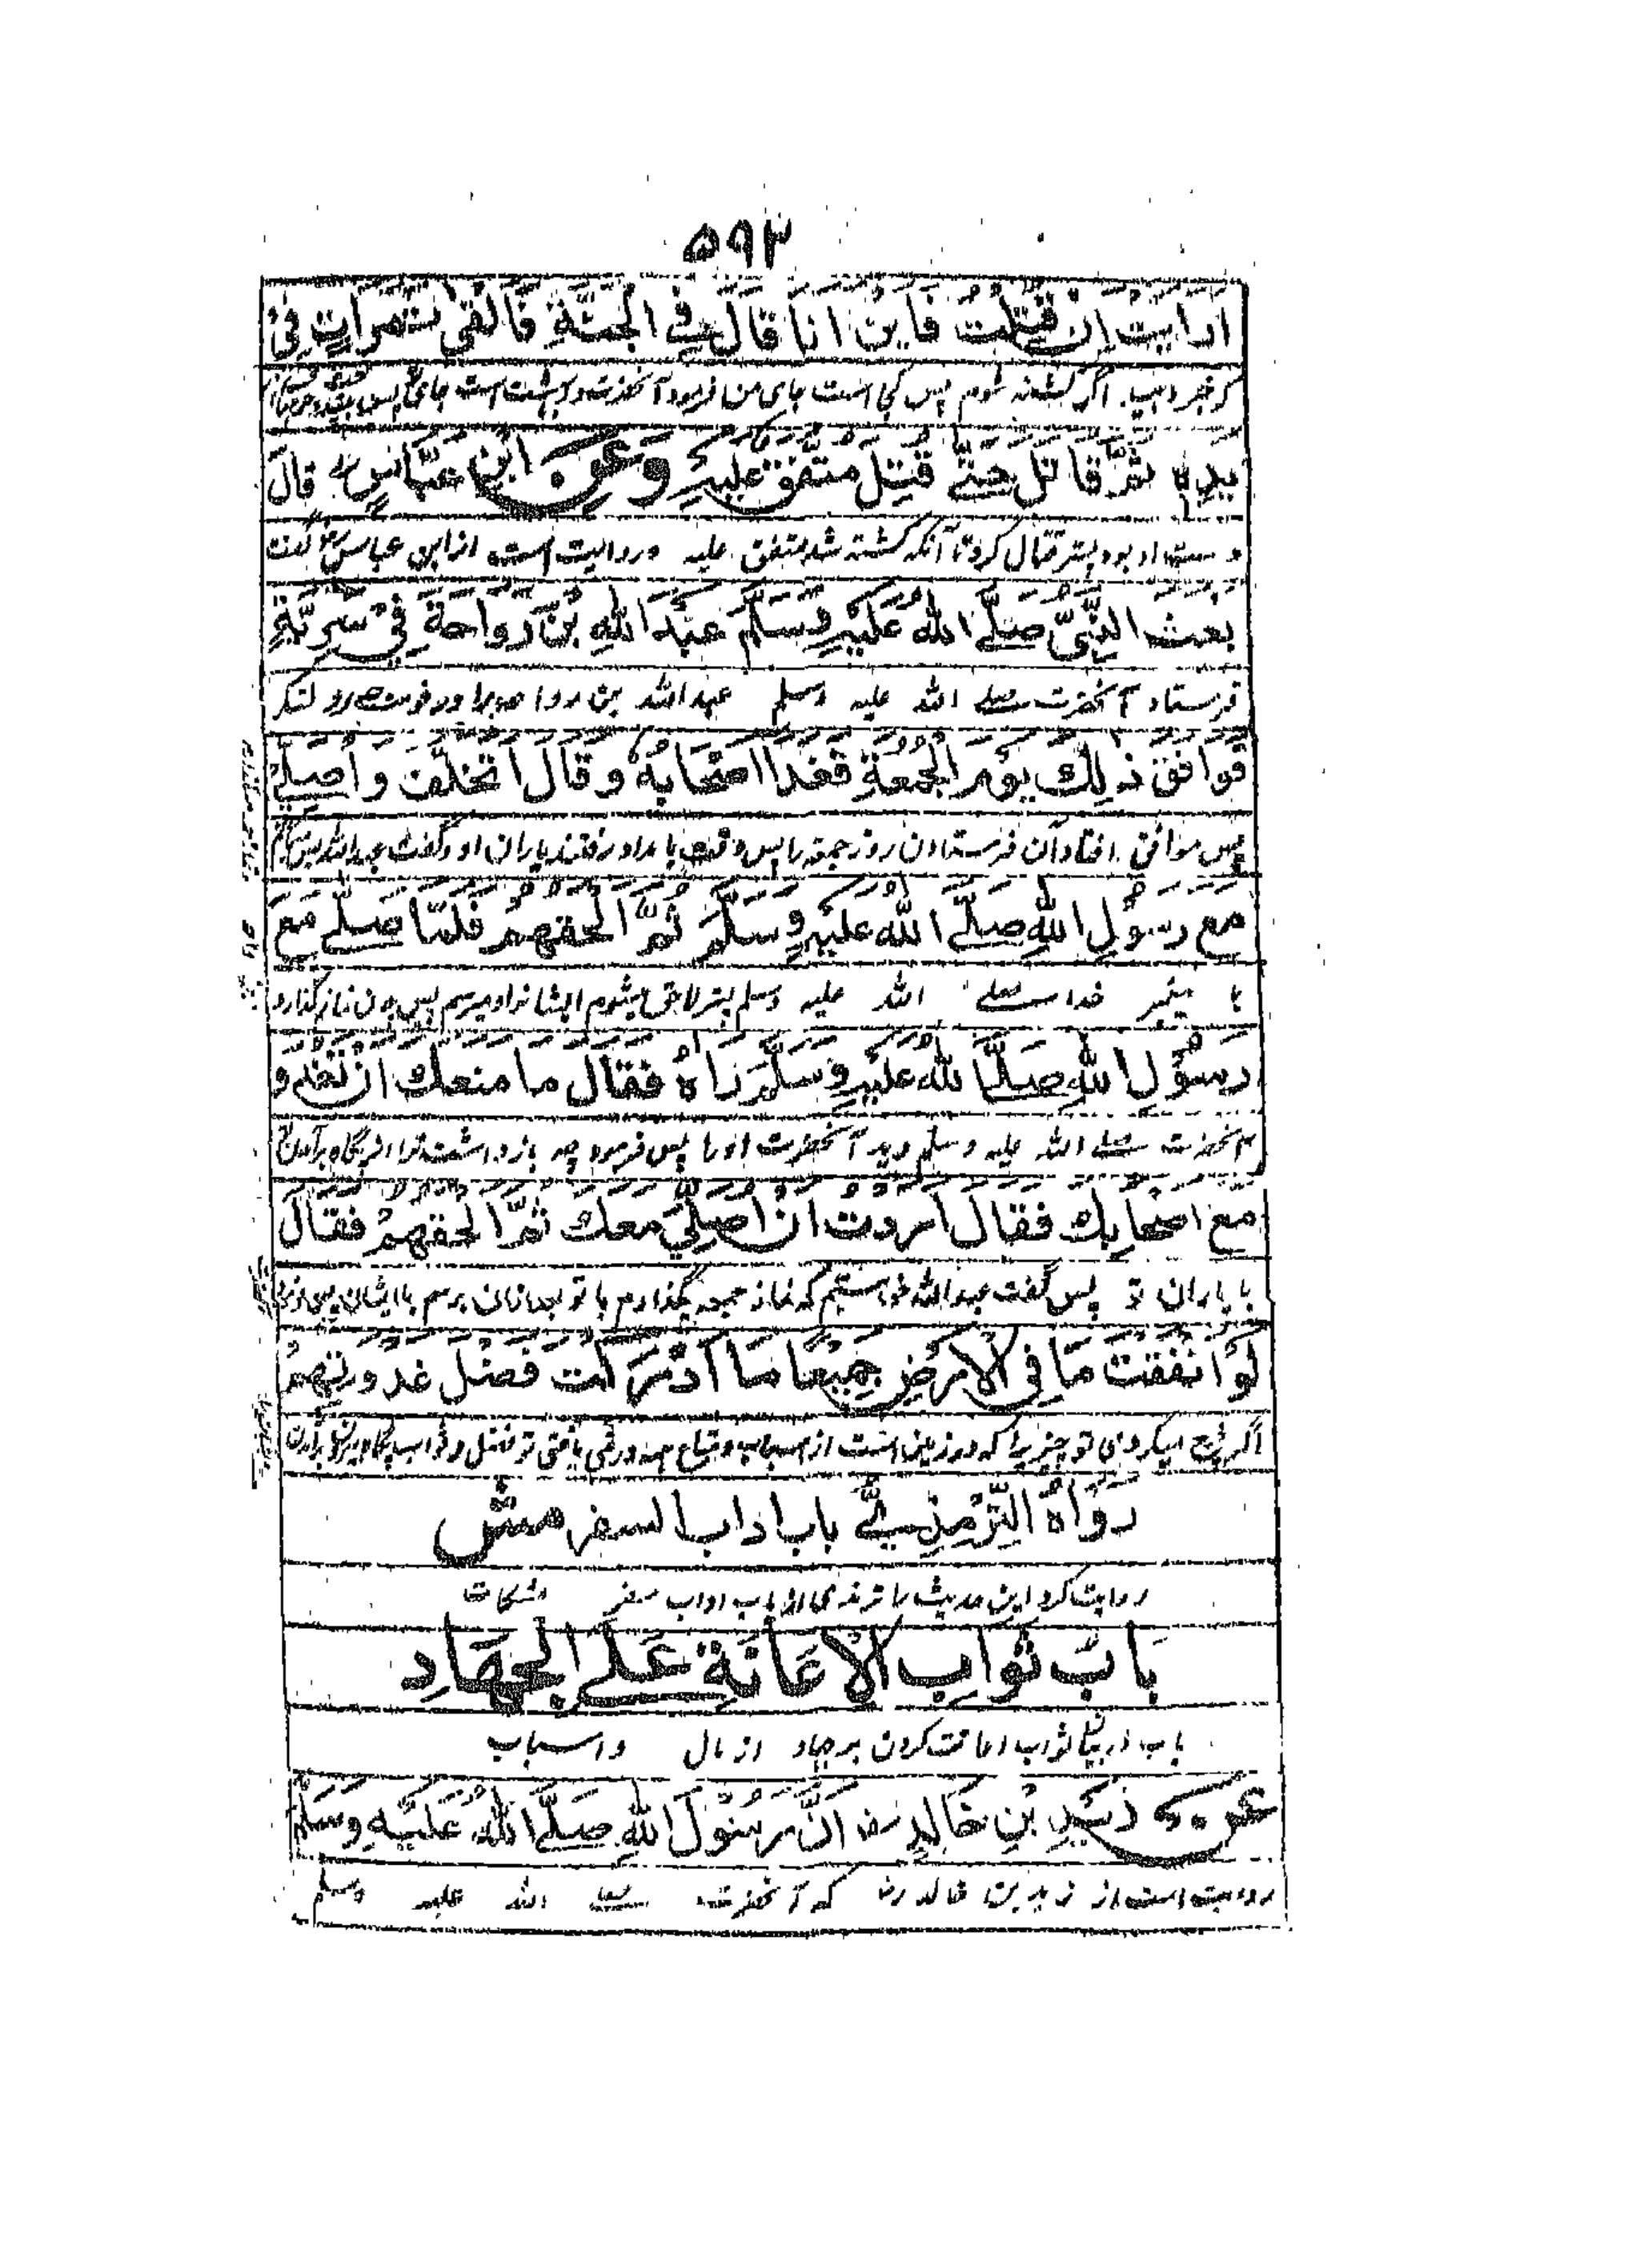 ۵۹۳
ارایت ان قتلت فاین انا قال فی الجنّة فالقی تمرات فی
کہ خبر دہید اگر کشتہ شوم پس کجا است جای من فرمود آنحضرت در بہشت است جای
یدہ ثمّ قاتل حتّے قتل متفق علیہ وعن ابن عبّاس رض قال
دست او بود پستر قتال کرد تا آنکہ کشتہ شد متفق علیہ و روایت است از ابن عباس رض گفت
بعث النّبیّ صلّے اللہ علیہ وسلّم عبد اللہ بن رواحة فی سریّة
فرستاد آنحضرت صلے اللہ علیہ وسلم عبد اللہ بن رواحہ را در
فوافق ذلك یوم الجمعة فغدا اصحابه وقال اتخلّف واصلّے
پس موافق افتاد آن فرستادن روز جمعہ را پس وقت بامداد رفتند یاران او و گفت عبد اللہ
مع رسول اللہ صلّے اللہ علیہ وسلّم ثمّ الحقهم فلمّا صلّے مع
با پیغمبر خدا صلے اللہ علیہ وسلم پستر لاحق میشوم ایشانرا و میرسم پس چون نماز گذارد
رسول اللہ صلّے اللہ علیہ وسلّم راٰہ فقال ما منعك ان تغدو
آنحضرت صلے اللہ علیہ وسلم دید آنحضرت او را پس فرمود چہ باز داشت ترا از پگاہ برآمدن
مع اصحابك فقال اردت ان اصلّی معك ثمّ الحقهم فقال
با یاران تو پس گفت عبد اللہ خواستم کہ نماز جمعہ بگذارم با تو بعد ازان برسم با ایشان پس
لو انفقت ما فی الارض جمیعا ما ادرکت فضل غدوتهم
اگر خرچ میکردی تو چیزیرا کہ در زمین است از اسباب و متاع ہمہ در نمی یافتی تو فضل و ثواب پگاہ
رواہ التّرمذیّ باب اداب السفر مش
روایت کرد این حدیث را ترمذی از باب اداب سفر مشکات
باب ثواب الاعانة علے الجهاد
باب در بیان ثواب اعانت کردن بر جہاد از مال و اسباب
عن زید بن خالد رض انّ رسول اللہ صلّے اللہ علیہ وسلّم
روایت است از زید بن خالد رض کہ آنحضرت صلے اللہ علیہ وسلم